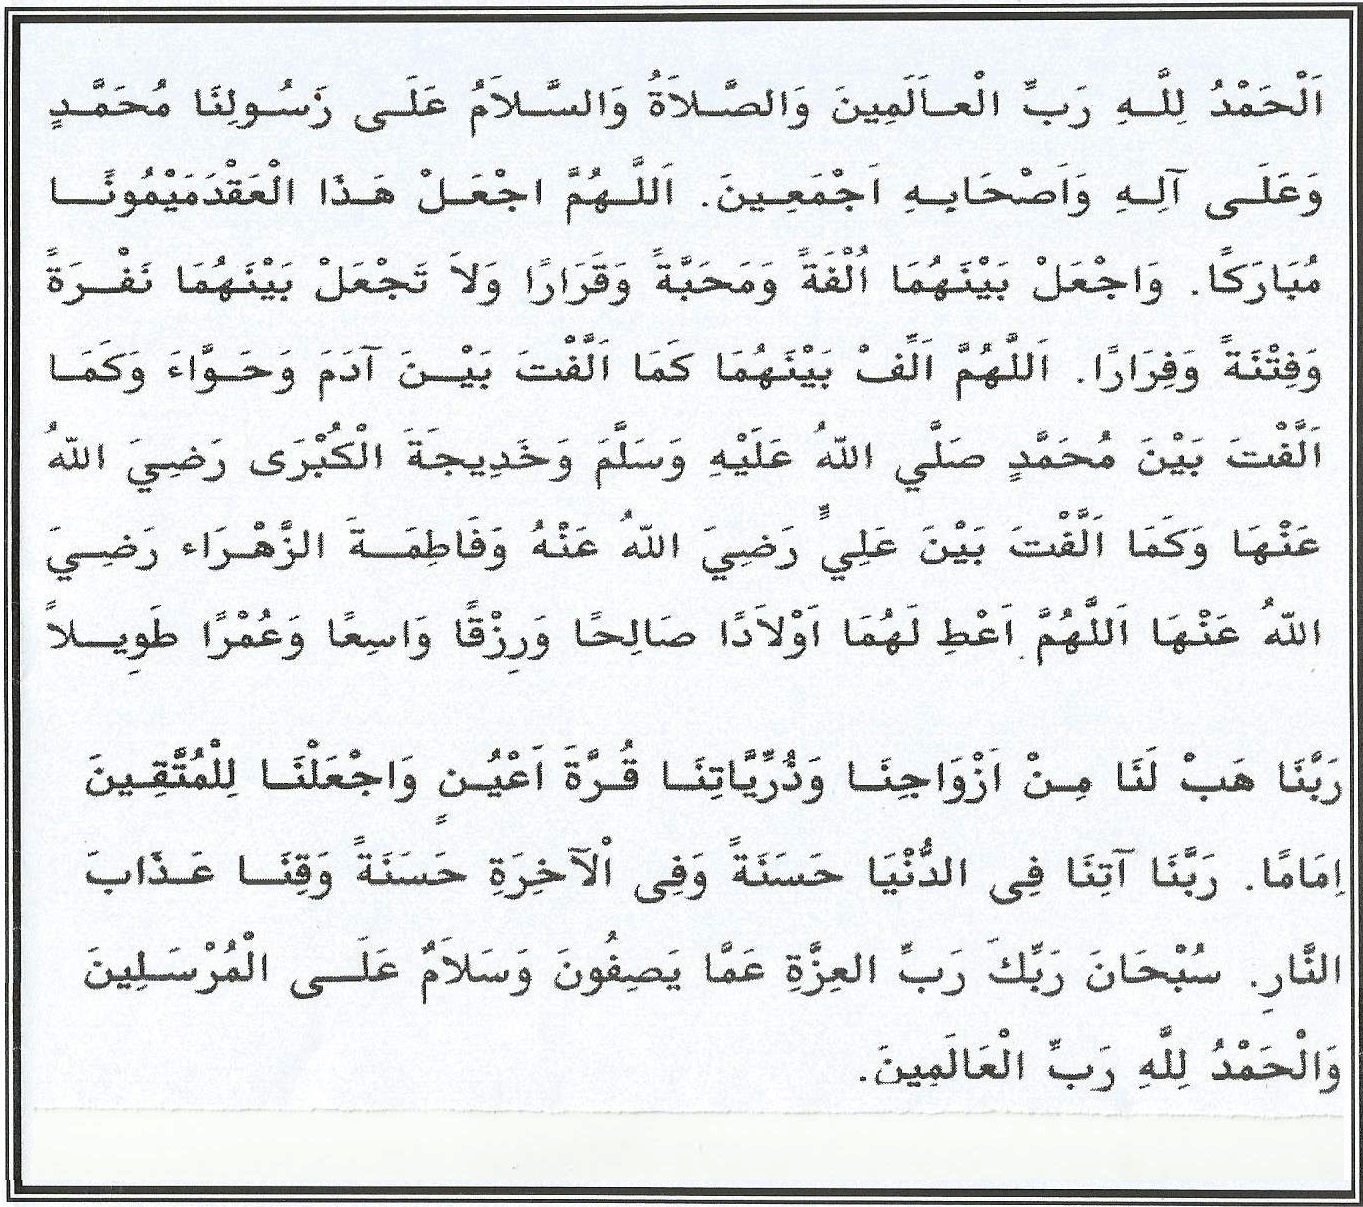 اَلْحَمْدُ لِلَّـهِ رَبِّ الْعـَالَمِينَ وَالصَّـلاَةُ وَالسَّـلاَمُ عَلَـى رَسُـولِنَا مُحَمَّـدٍ
وَعَلَـى آلِـهِ وَاَصْحَابـِهِ اَجْمَعِـينَ. اَللَّـهُمَّ اجْعَـلْ هَـذَا الْعَقْدَمَيْمُونـًـا
مُبَارَكًا. وَاجْعَلْ بَيْنَهُمَا اُلْفَةً وَمَحَبَّةً وَقَرَارًا وَلاَ تَجْعَلْ بَيْنَهُمَا نَفْـرَةً
وَفِتْنَةً وَفِرَارًا. اَللَّهُمَّ اَلِّفْ بَيْنَهُمَا كَمَا اَلَّفْتَ بَيْـنَ آدَمَ وَحَـوَّاءَ وَكَمَـا
اَلَّفْتَ بَيْنَ مُحَمَّدٍ صَلَّي اللهُ عَلَيْهِ وَسَلَّمَ وَخَدِيجَةَ الْكُبْرَى رَضِيَ اللهُ
عَنْهَا وَكَمَا اَلَّفْتَ بَيْنَ عَلِيٍّ رَضِيَ اللهُ عَنْهُ وَفَاطِمَـةَ الزَّهْـرَاء رَضِـيَ
اللهُ عَنْهَا اَللَّهُمَّ اَعْطِ لَهُمَا اَوْلاَدًا صَالِحًا وَرِزْقًا وَاسِعًا وَعُمْرًا طَوِيـلاً
رَبَّنَا هَبْ لَنَا مِـنْ اَزْوَاجِنَـا وَذُرِّيَّاتِنَـا قُـرَّةَ اَعْيُـنٍ وَاجْعَلْنَـا لِلْمُتَّقِـينَ
اِمَامًا. رَبَّنَا آتِنَا فِى الدُّنْيَا حَسَنَةً وَفِى اْلآخِرَةِ حَسَنَةً وَقِنَـا عَـذَابَ
النَّارِ. سُبْحَانَ رَبِّكَ رَبِّ العِزَّةِ عَمَّا يَصِفُونَ وَسَلاَمٌ عَلَـى الْمُرْسَـلِينَ
وَالْحَمْدُ لِلَّهِ رَبِّ الْعَالَمِينَ.